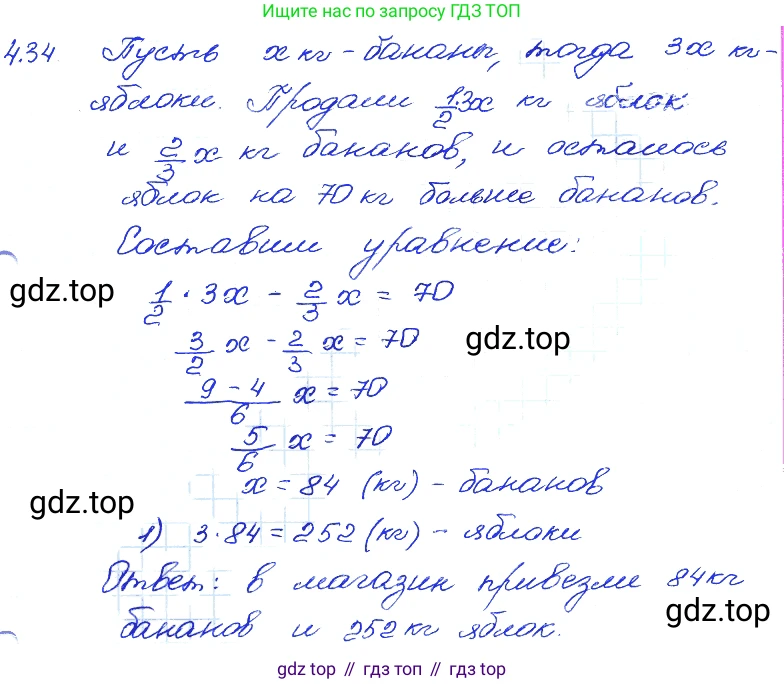 Ищите нас по запросу ГДЗ ТОП
4.34 Пусть x кг - бананы, тогда 3x кг -
яблоки. Продали 1/2·3x кг яблок
и 2/3 x кг бананов, и осталось
яблок на 70 кг больше бананов.
Составим уравнение:
1/2 · 3x - 2/3 x = 70
gdz.top
3/2 x - 2/3 x = 70
gdz.top
9 - 4/6 x = 70
5/6 x = 70
x = 84 (кг) - бананов
gdz.top
1) 3·84 = 252 (кг) - яблоки
Ответ: в магазин привезли 84 кг
gdz.top
бананов и 252 кг яблок.
gdz top // гдз топ // gdz top